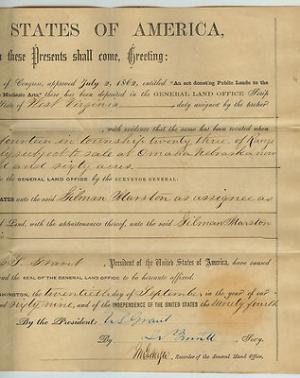 STATES OF AMERICA,
these Presents shall come, Greeting:
of Congress, approved July 2, 1862, entitled "An act donating Public Lands to the
Mechanic Arts," there has been deposited in the GENERAL LAND OFFICE Scrip
State of West Virginia duly assigned by the
with evidence that the same has been located upon
fourteen in township twenty three of Range
subject to sale at Omaha Nebraska now
and sixty acres
the GENERAL LAND OFFICE by the SURVEYOR GENERAL:
STATES unto the said Gilman Marston as assignee as
of Land, with the appurtenances thereof, unto the said Gilman Marston
S. Grant, President of the United States of America, have caused
the SEAL OF THE GENERAL LAND OFFICE to be hereunto affixed.
WASHINGTON, the twentieth day of September in the year of our
sixty nine, and of the INDEPENDENCE OF THE UNITED STATES the ninety fourth
By the President: U S Grant
By Secy.
Recorder of the General Land Office.